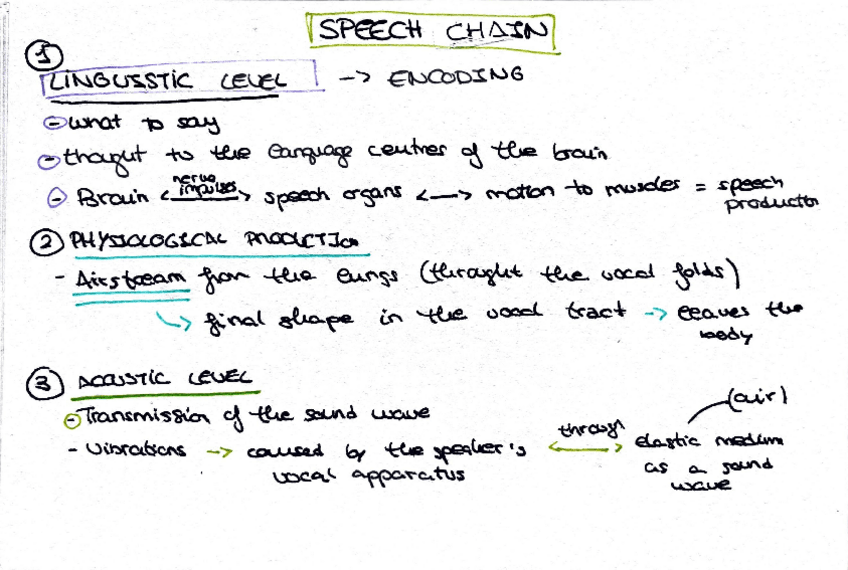 SPEECH CHAIN
1
LINGUISTIC LEVEL -> ENCODING
- what to say
- thought to the language centres of the brain
- Brain <- nerve impulses -> speech organs <-> motion to muscles = speech
productor
2 PHYSIOLOGICAL PRODUCTION
- Airstream from the lungs (throught the vocal folds)
-> final shape in the vocal tract -> leaves the
body
3 ACOUSTIC LEVEL
- Transmission of the sound wave (air)
- Vibrations -> caused by the speaker's <- through -> elastic medium
vocal apparatus as a sound
wave